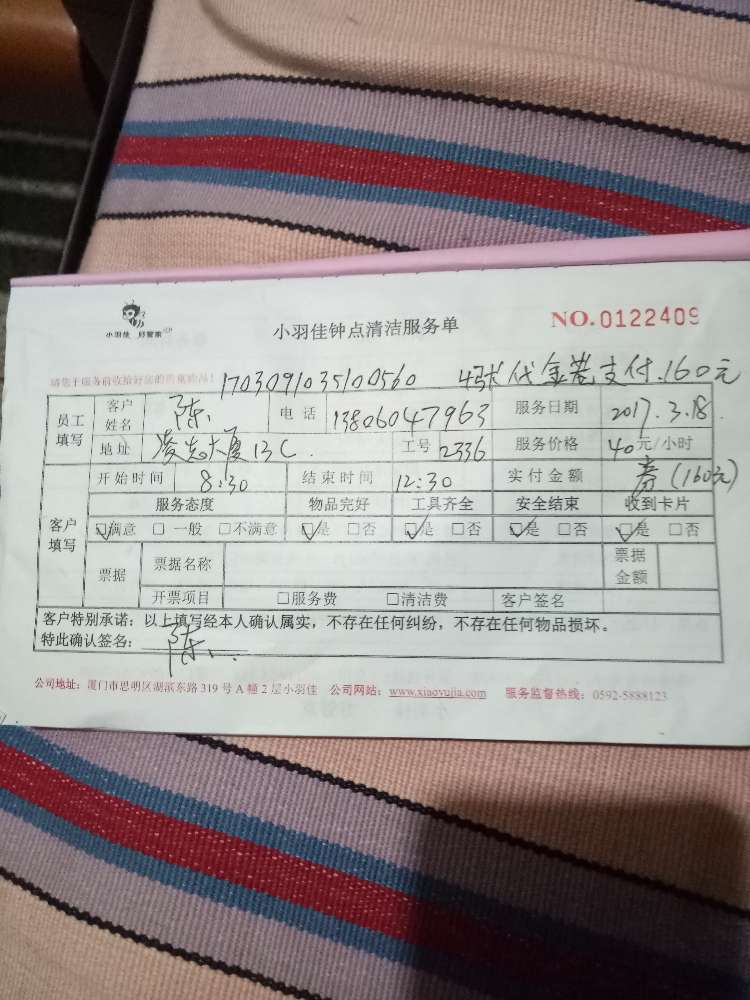 小羽佳 好管家
小羽佳钟点清洁服务单
NO.0122409
1703091035100560 4张代金卷支付.160元
员工填写 客户姓名 陈. 电话 13806047963 服务日期 2017.3.18.
地址 凌志大厦13C. 工号 2336 服务价格 40元/小时
客户填写 开始时间 8:30 结束时间 12:30 实付金额 券(160元)
服务态度 物品完好 工具齐全 安全结束 收到卡片
☑满意 □一般 □不满意 ☑是 □否 ☑是 □否 ☑是 □否 ☑是 □否
票据 票据名称 票据金额
开票项目 □服务费 □清洁费 客户签名
客户特别承诺:以上填写经本人确认属实,不存在任何纠纷,不存在任何物品损坏。
特此确认签名: 陈..
公司地址:厦门市思明区湖滨东路319号A幢2层小羽佳 公司网站:www.xiaoyujia.com 服务监督热线:0592-5888123